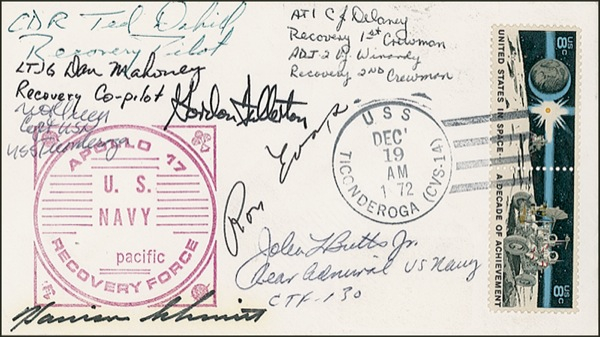 CDR Ted Dahill
Recovery Pilot
LTJG Dan Mahoney
Recovery Co-pilot
Capt USN
USS Ticonderoga
AT1 C J Delaney
Recovery 1st Crewman
ADJ-2 by
Recovery 2ND Crewman
Gordon Fullerton
Ron Evans
APOLLO 17
U. S.
NAVY
pacific
RECOVERY FORCE
USS
DEC
19
AM
1972
TICONDEROGA (CVS-14)
John L Butts Jr.
Rear Admiral US Navy
CTF-130
Harrison Schmitt
UNITED STATES IN SPACE... A DECADE OF ACHIEVEMENT
8c US
8c US